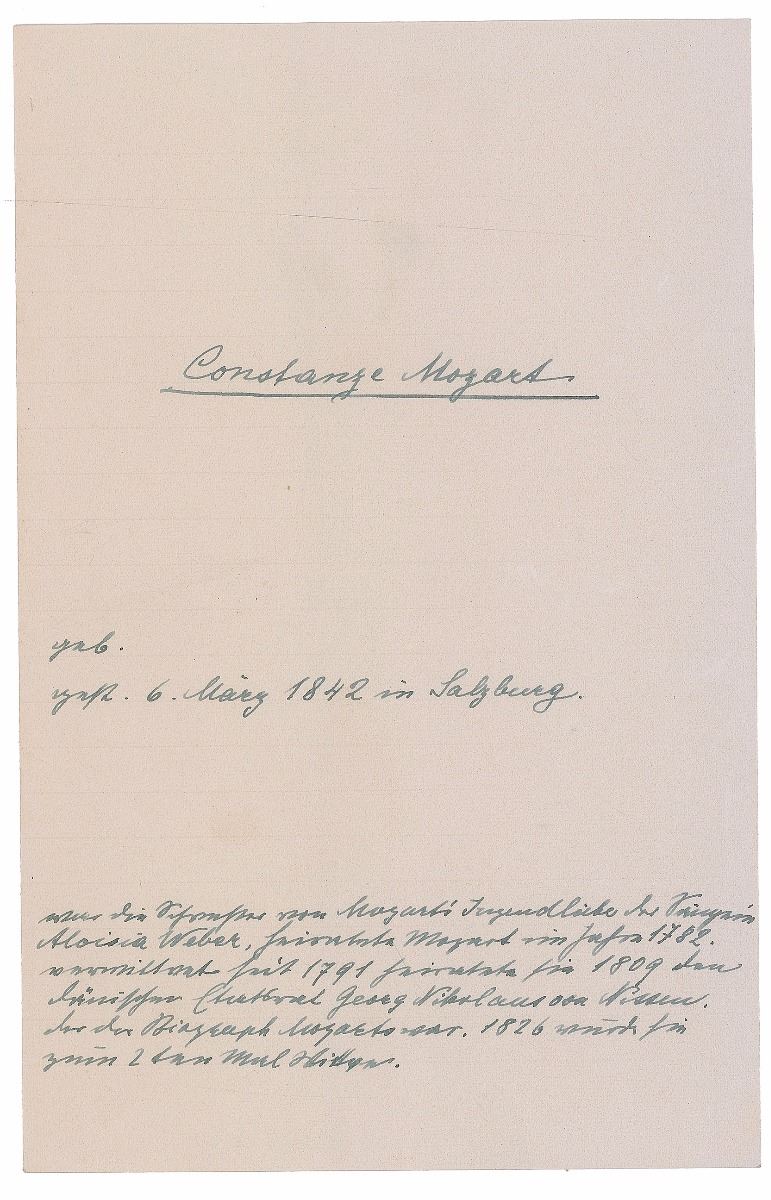 Constanze Mozart
geb.
gest. 6. März 1842 in Salzburg.
war die Schwester von Mozart's Jugendliebe der Sängerin
Aloisia Weber, heiratete Mozart im Jahre 1782.
verwittwet seit 1791 heiratete sie 1809 den
dänischen Etatsrat Georg Nikolaus von Nissen.
der der Biograph Mozarts war. 1826 wurde sie
zum 2ten Mal Witwe.